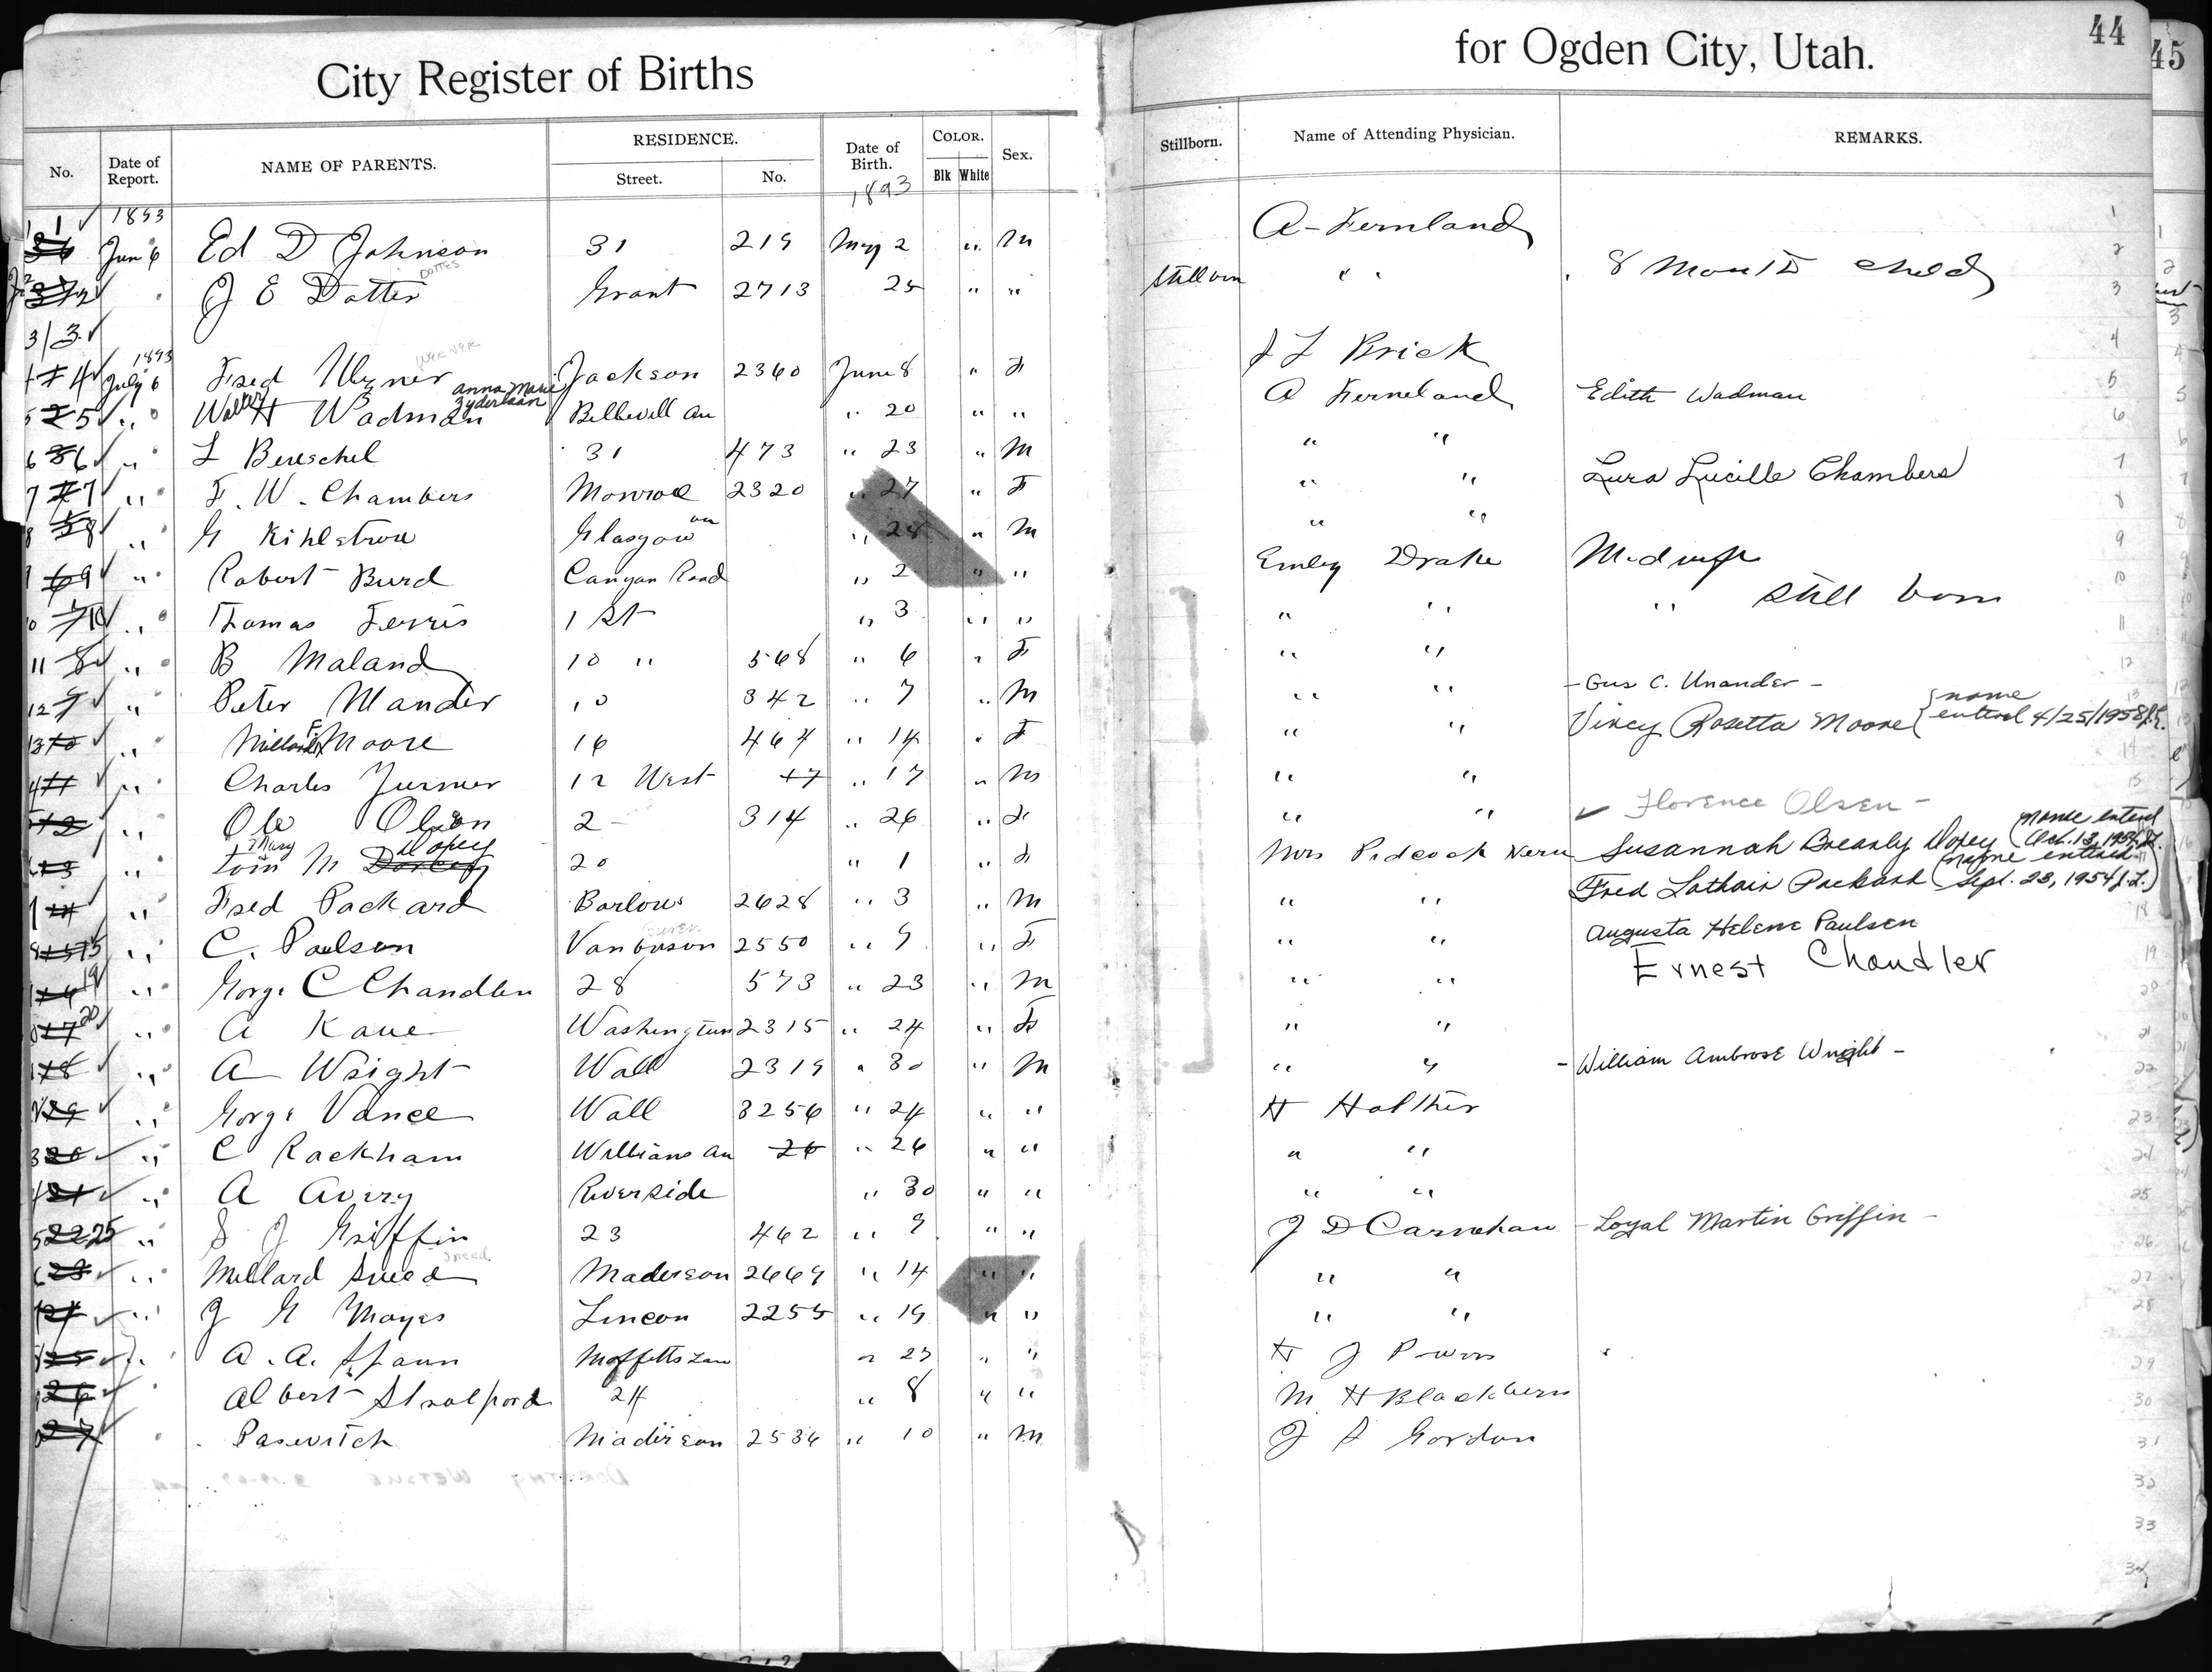 City Register of Births
for Ogden City, Utah.
44
45
No. Date of Report. NAME OF PARENTS. RESIDENCE. Street. No. Date of Birth. COLOR. Blk White Sex. Stillborn. Name of Attending Physician. REMARKS.
1893 1893
1 Jun 6 Ed D Johnson 31 219 May 2 " M A - Fernland 1
J E Dotter DOTTES Grant 2713 25 " " Stillborn " " 8 Month child 2
3 3
1893
4 July 6 Fred Wegner WERNER Jackson 2360 June 8 " F J L Brick 4
5 " Walter H Wadman Anna Marie Zyderlaan Billevill Au " 20 " " A Ferneland Edith Wadman 5
6 " L Bereschel 31 473 " 23 " M " " 6
7 " F. W. Chambers Monroe 2320 " 27 " F " " Lura Lucille Chambers 7
8 " G Kihlstrow Glasgow au " 28 " M " " 8
9 " Robert Burd Canyon Road " 2 " " Emley Drake Midwife 9
10 " Thomas Ferris 1 St " 3 " " " " " Still born 10
11 " B Maland 10 " 568 " 6 " F " " 11
12 " Peter Nander 10 342 " 7 " M " " - Gus C. Unander - 12
13 " Millard F Moore 16 464 " 14 " F " " Vincy Rosetta Moore { name entered 4/25/1958 13
14 " Charles Turner 12 West 17 " 17 " M " " 14
" Ole Olson 2 - 314 " 26 " F " " ✓ Florence Olsen - 15
" Tom M & Mary Dorcey Dopey 20 " 1 " F Mrs Pidcock Kern Susannah Brearly Dopey (name entered Oct. 13, 1954
" Fred Packard Barlows 2628 " 3 " M " " Fred Lothair Packard (name entered Sept. 23, 1954 J.L.)
" C. Poulson Vanbuson BUREN 2550 " 9 " F " " Augusta Helene Paulsen 18
19 " Gorge C Chandler 28 573 " 23 " M " " Ernest Chandler 19
20 " A Kane Washington 2315 " 24 " F " " 20
" A Wright Wall 2319 " 30 " M " " - William Ambrose Wright - 21
" Gorge Vance Wall 3256 " 24 " " H Holther 22
" C Rackham Williams Au 26 " 26 " " " " 23
" A Avery Riverside " 30 " " " " 24
25 " S J Griffin 23 462 " 9 " " J D Carnahan - Loyal Martin Griffin - 25
" Millard Sneed Sneed Maderson 2669 " 14 " " " " 26
" J G Mayes Lincon 2255 " 19 " " " " 27
" A. A. Spaun Moffetts Lane " 27 " " H J Powers 28
Albert Stratford 24 " 8 " " M H Blackburn 29
Pasevitch Madirson 2536 " 10 " M J S Gordon 30
31
32
33
34